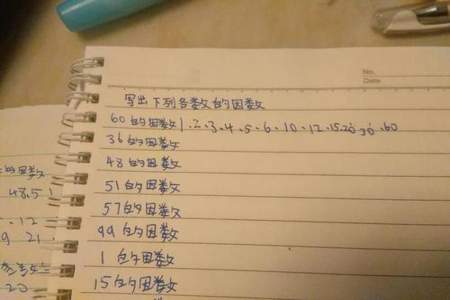 No.
Date
写出下列各数的因数
60的因数1.2.3.4.5.6.10.12.15.20.30.60
36的因数
48的因数
51的因数
57的因数
99的因数
1的因数
15的因数
的因数
48.51
12
9 21
20